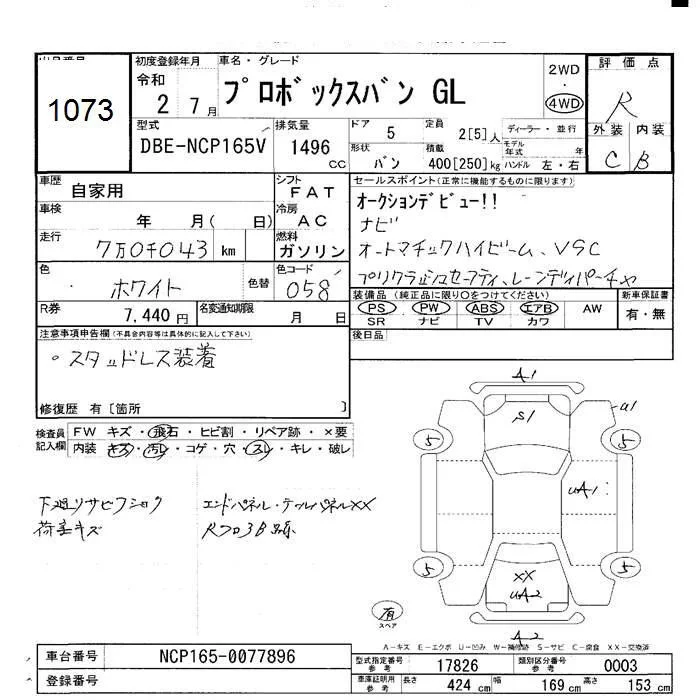 1073
初度登録年月
令和
2 7月
車名・グレード
プロボックスバン GL
2WD
・
4WD
評価点
R
外装 内装
C B
型式
DBE-NCP165V
排気量
1496
cc
ドア
5
定員
2[5]人
ディーラー・並行
モデル年式 年
形状
バン
積載
400[250]kg
ハンドル 左・右
車歴
自家用
シフト
FAT
セールスポイント(正常に機能するものに限ります)
オークションデビュー!!
ナビ
オートマチックハイビーム、VSC
プリクラッシュセーフティ、レーンディパーチャ
車検
年 月( 日)
冷房
AC
走行
7万0千043 km
燃料
ガソリン
色
ホワイト
色替
色コード
058
R券
7,440円
名変通知期限
月 日
装備品(純正品に限り○をつけてください)
PS PW ABS エアB AW
SR ナビ TV カワ
新車保証書
有・無
注意事項申告欄(不具合内容等は具体的に記入して下さい)
・スタッドレス装着
後日品
修復歴 有〔箇所 〕
検査員記入欄
FW キズ・飛石・ヒビ割・リペア跡・×要
内装 キズ・汚レ・コゲ・穴・スレ・キレ・破レ
下廻リサビフショク
荷室キズ
エンドパネル・テールパネルXX
A1
S1
U1
5
5
UA1
5
5
XX
UA2
A2
有
スペア
A-キズ E-エクボ U-凹み W-補修跡 S-サビ C-腐食 XX-交換済
車台番号
NCP165-0077896
登録番号
型式指定番号
参考
17826
類別区分番号
参考
0003
車庫証明用
参考
長さ 424 cm 幅 169 cm 高さ 153 cm